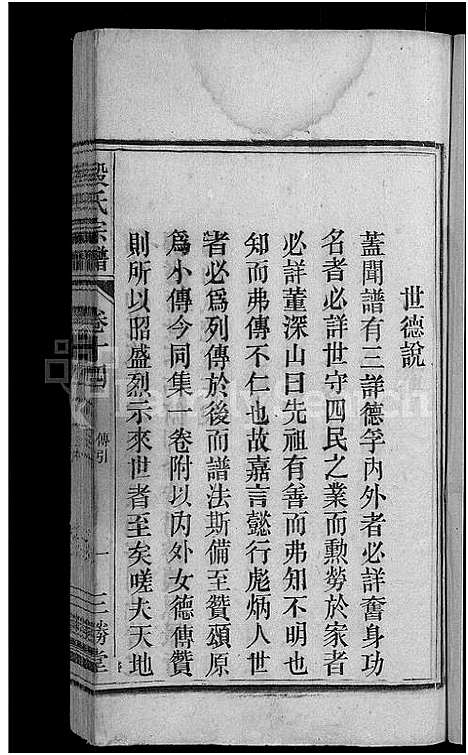 世德說
蓋聞譜有三詳德孚內外者必詳奮身功
名者必詳世守四民之業而勳勞於家者
必詳董深山曰先祖有善而弗知不明也
知而弗傳不仁也故嘉言懿行彪炳人世
者必爲列傳於後而譜法斯備至贊頌原
爲小傳今同集一卷附以內外女德傳贊
則所以昭盛烈示來世者至矣嗟夫天地
段氏宗譜
卷十四
傳引
一
三勝堂
FamilySearch